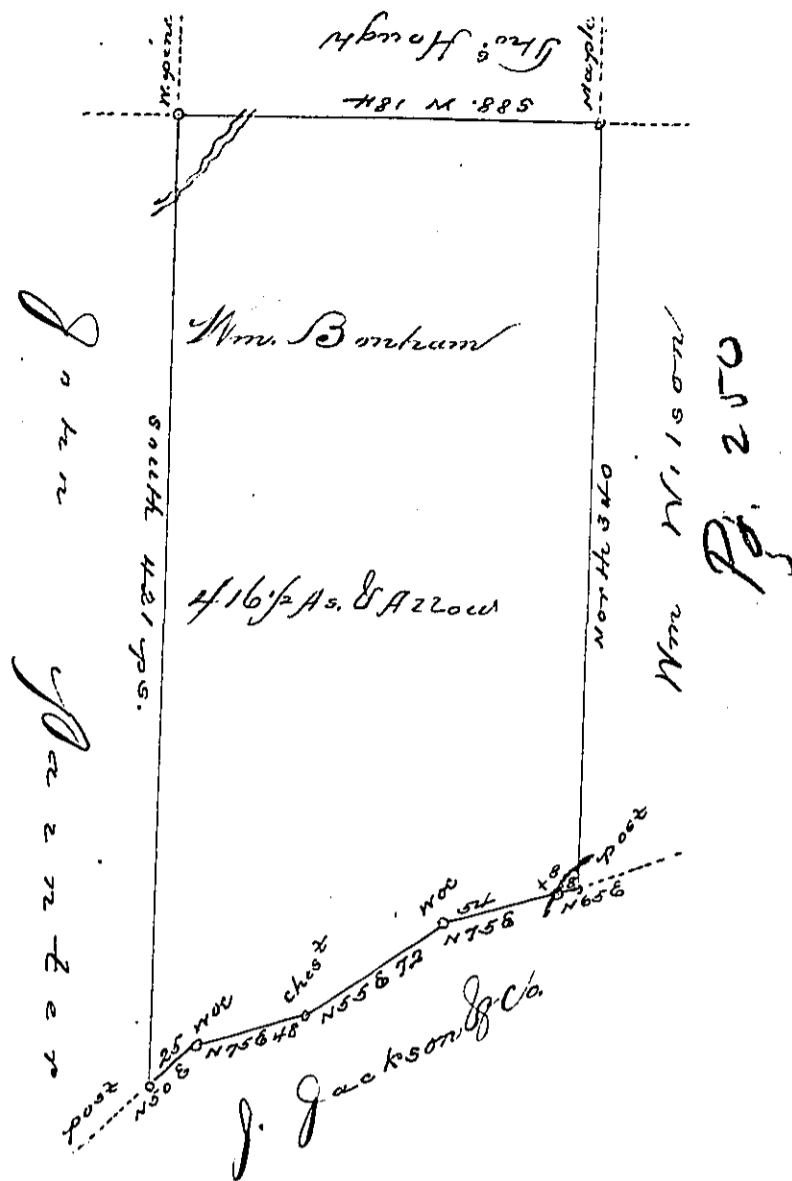 W. pine
Tho.s Hough
Maple
S88. W 184
Wm.
John
south 421 ps.
416 1/2 As. & Allow
North 340
Wm Wilson
Pg. 250
post
N50E 25
woc
N75E 48
chest
N55E 72
woc
N75E 54
N65E 8
post
J. Jackson, & Co.